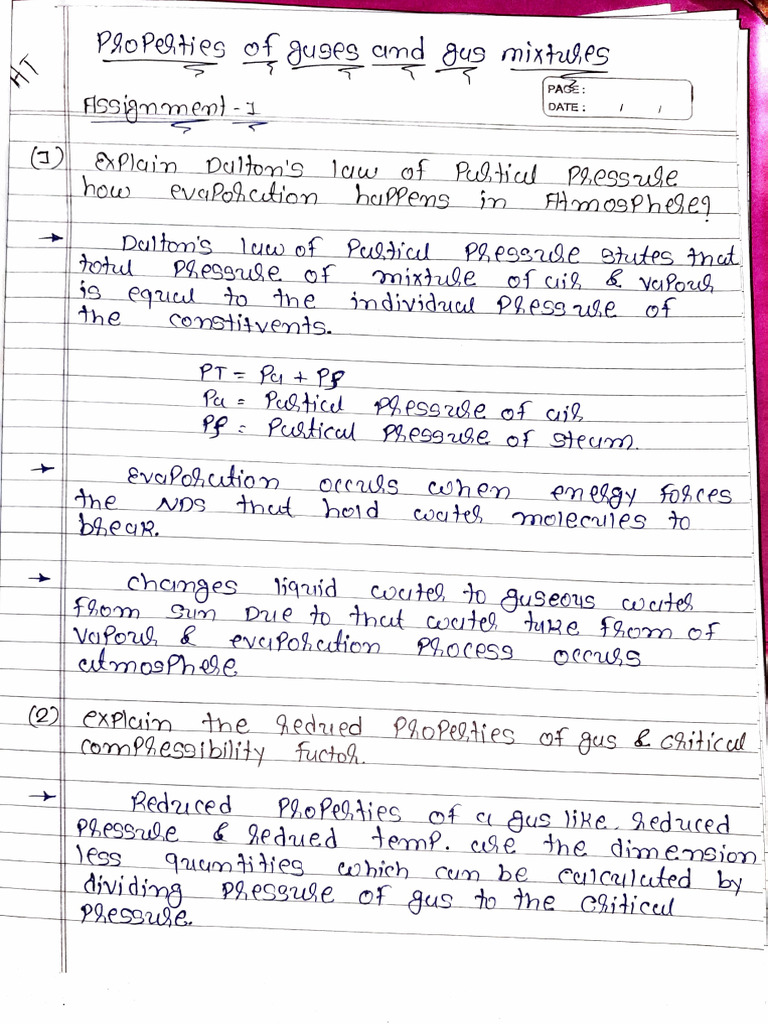 HT
Properties of gases and gas mixtures
PAGE:
DATE: / /
Assignment - 1
(1) Explain Dalton's law of Partial Pressure
how evaporation happens in Atmosphere?
→ Dalton's law of Partical Pressure states that
total Pressure of mixture of air & vapour
is equal to the individual Pressure of
the constitvents.
PT = Pa + Pf
Pa = Partical Pressure of air
Pf = Partical Pressure of steam.
→ Evaporation occurs when energy forces
the NDS that hold water molecules to
break.
→ Changes liquid water to gaseous water
from sun Due to that water take from of
vapour & evaporation Process occurs
atmosphere
(2) explain the redued Properties of gas & critical
compressibility factor.
→ Reduced Properties of a gas like. reduced
Pressure & redued temp. are the dimension
less quantities which can be calculated by
dividing Pressure of gas to the critical
Pressure.